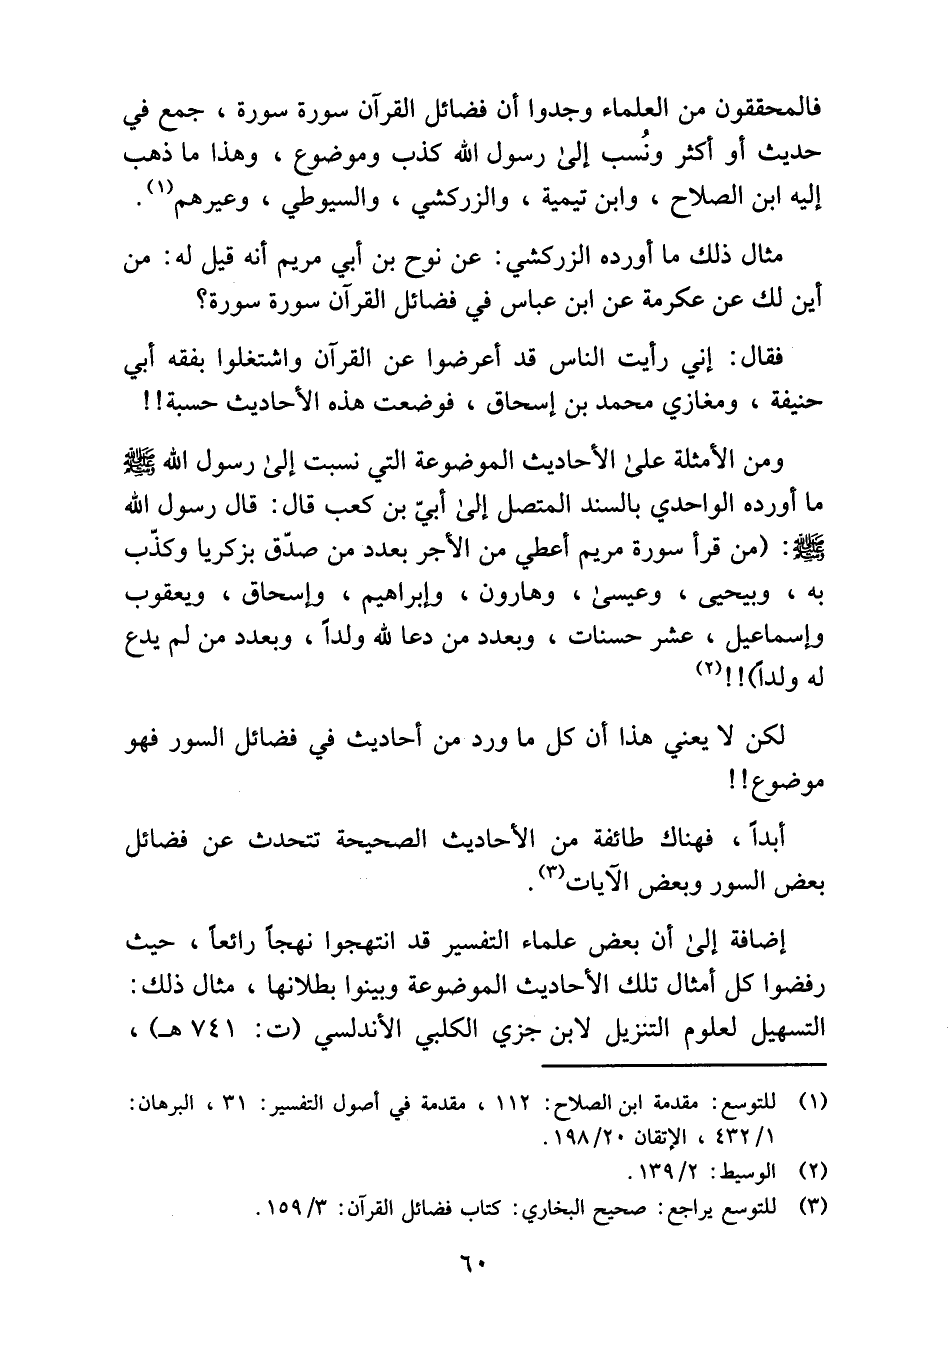 فالمحققون من العلماء وجدوا أن فضائل القرآن سورة سورة ، جمع في
حديث أو أكثر ونُسب إلىٰ رسول الله كذب وموضوع ، وهذا ما ذهب
إليه ابن الصلاح ، وابن تيمية ، والزركشي ، والسيوطي ، وعيرهم(١).
مثال ذلك ما أورده الزركشي: عن نوح بن أبي مريم أنه قيل له: من
أين لك عن عكرمة عن ابن عباس في فضائل القرآن سورة سورة؟
فقال: إني رأيت الناس قد أعرضوا عن القرآن واشتغلوا بفقه أبي
حنيفة ، ومغازي محمد بن إسحاق ، فوضعت هذه الأحاديث حسبة!!
ومن الأمثلة علىٰ الأحاديث الموضوعة التي نسبت إلىٰ رسول الله ﷺ
ما أورده الواحدي بالسند المتصل إلىٰ أبيّ بن كعب قال: قال رسول الله
ﷺ: (من قرأ سورة مريم أعطي من الأجر بعدد من صدّق بزكريا وكذّب
به ، وبيحيى ، وعيسىٰ ، وهارون ، وإبراهيم ، وإسحاق ، ويعقوب
وإسماعيل ، عشر حسنات ، وبعدد من دعا لله ولداً ، وبعدد من لم يدع
له ولداً)!!(٢)
لكن لا يعني هذا أن كل ما ورد من أحاديث في فضائل السور فهو
موضوع!!
أبداً ، فهناك طائفة من الأحاديث الصحيحة تتحدث عن فضائل
بعض السور وبعض الآيات(٣).
إضافة إلىٰ أن بعض علماء التفسير قد انتهجوا نهجاً رائعاً ، حيث
رفضوا كل أمثال تلك الأحاديث الموضوعة وبينوا بطلانها ، مثال ذلك:
التسهيل لعلوم التنزيل لابن جزي الكلبي الأندلسي (ت: ٧٤١ هـ) ،
(١) للتوسع: مقدمة ابن الصلاح: ١١٢ ، مقدمة في أصول التفسير: ٣١ ، البرهان:
٤٣٢/١ ، الإتقان ١٩٨/٢٠.
(٢) الوسيط: ١٣٩/٢.
(٣) للتوسع يراجع: صحيح البخاري: كتاب فضائل القرآن: ١٥٩/٣.
٦٠